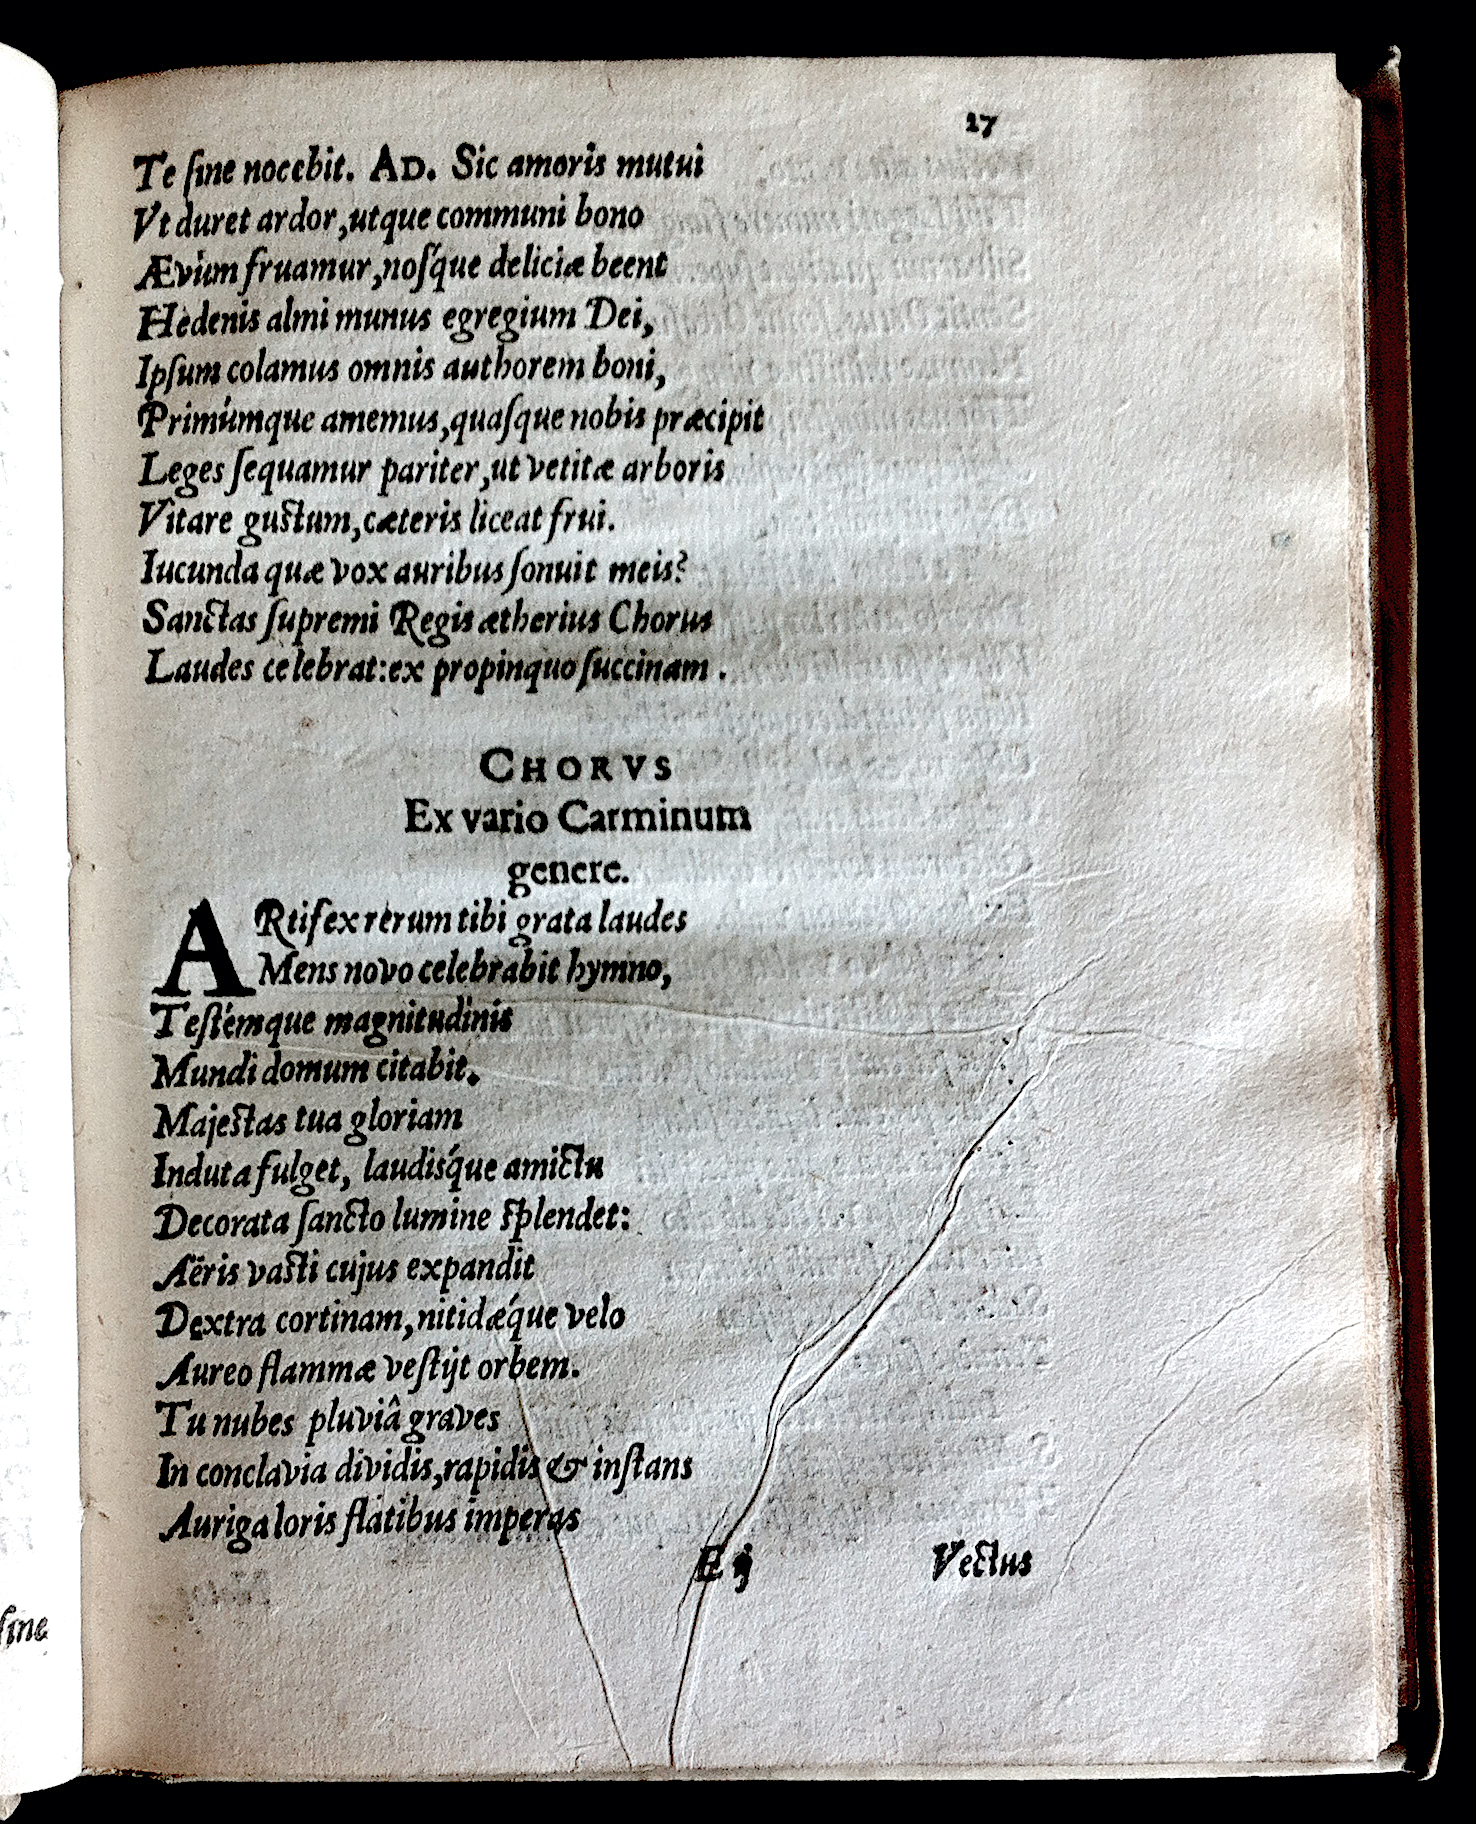 27
Te ſine nocebit. AD. Sic amoris mutui
Vt duret ardor, utque communi bono
Ævum fruamur, noſque deliciæ beent
Hedenis almi munus egregium Dei,
Ipſum colamus omnis authorem boni,
Primúmque amemus, quaſque nobis præcipit
Leges ſequamur pariter, ut vetitæ arboris
Vitare guſtum, cæteris liceat frui.
Iucunda quæ vox auribus ſonuit meis?
Sanctas ſupremi Regis ætherius Chorus
Laudes celebrat: ex propinquo ſuccinam.
CHORVS
Ex vario Carminum
genere.
ARtifex rerum tibi grata laudes
Mens novo celebrabit hymno,
Teſtémque magnitudinis
Mundi domum citabit.
Majeſtas tua gloriam
Induta fulget, laudíſque amictu
Decorata ſancto lumine ſplendet:
Aëris vaſti cujus expandit
Dextra cortinam, nitidǽque velo
Aureo flammæ veſtijt orbem.
Tu nubes pluviâ graves
In conclavia dividis, rapidis & inſtans
Auriga loris flatibus imperas
E ij
Vectus
ſine